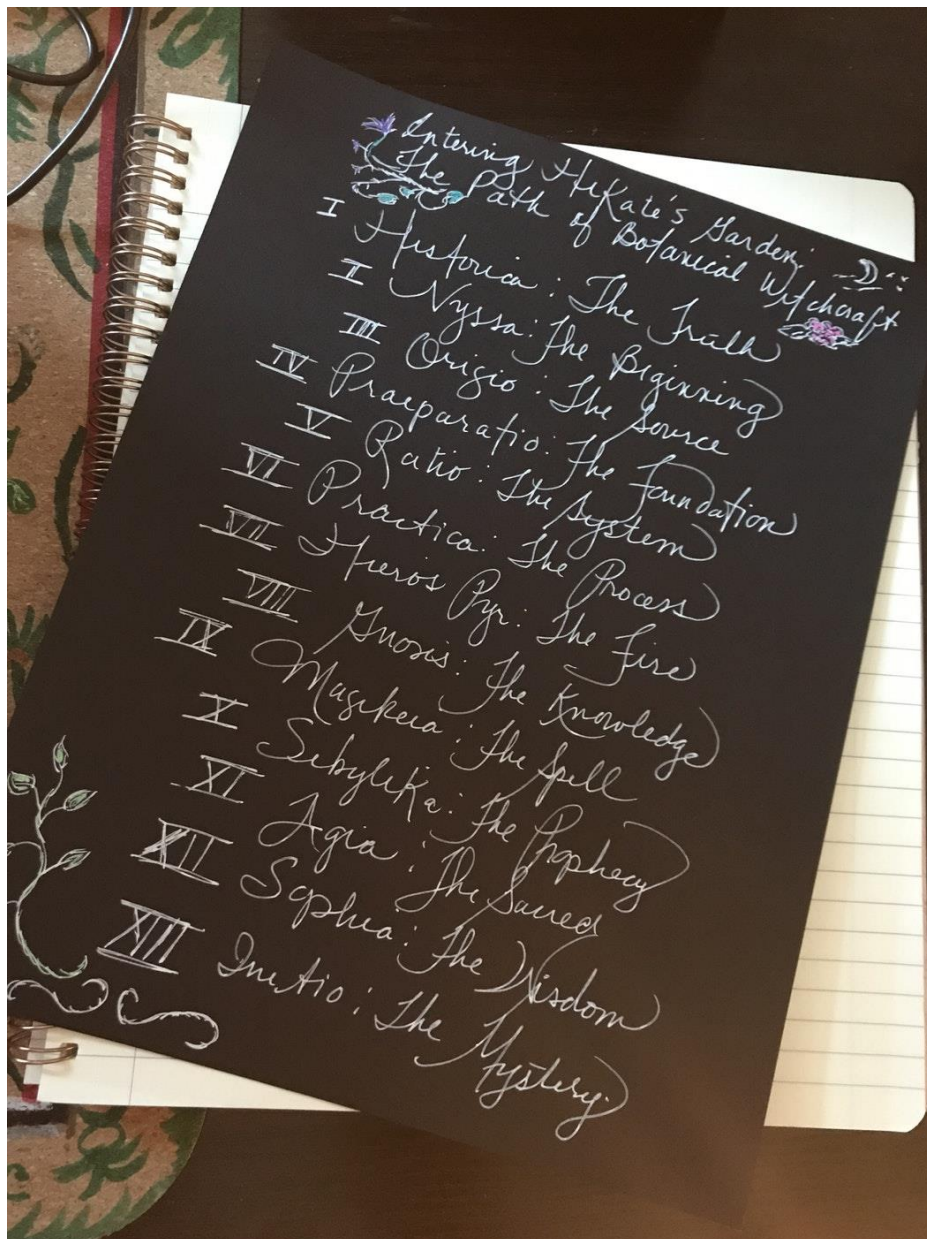 Entering HeKate's Garden:
The Path of Botanical Witchcraft
I Historica: The Truth
I Nyssa: The Beginning
III Origio: The Source
IV Praeparatio: The Foundation
V Ratio: The System
VI Practica: The Process
VII Hieros Pyr: The Fire
VIII Gnosis: The Knowledge
IX Magikeia: The Spell
X Sibylika: The Prophecy
XI Agia: The Sacred
XII Sophia: The Wisdom
XIII Initio: The Mystery